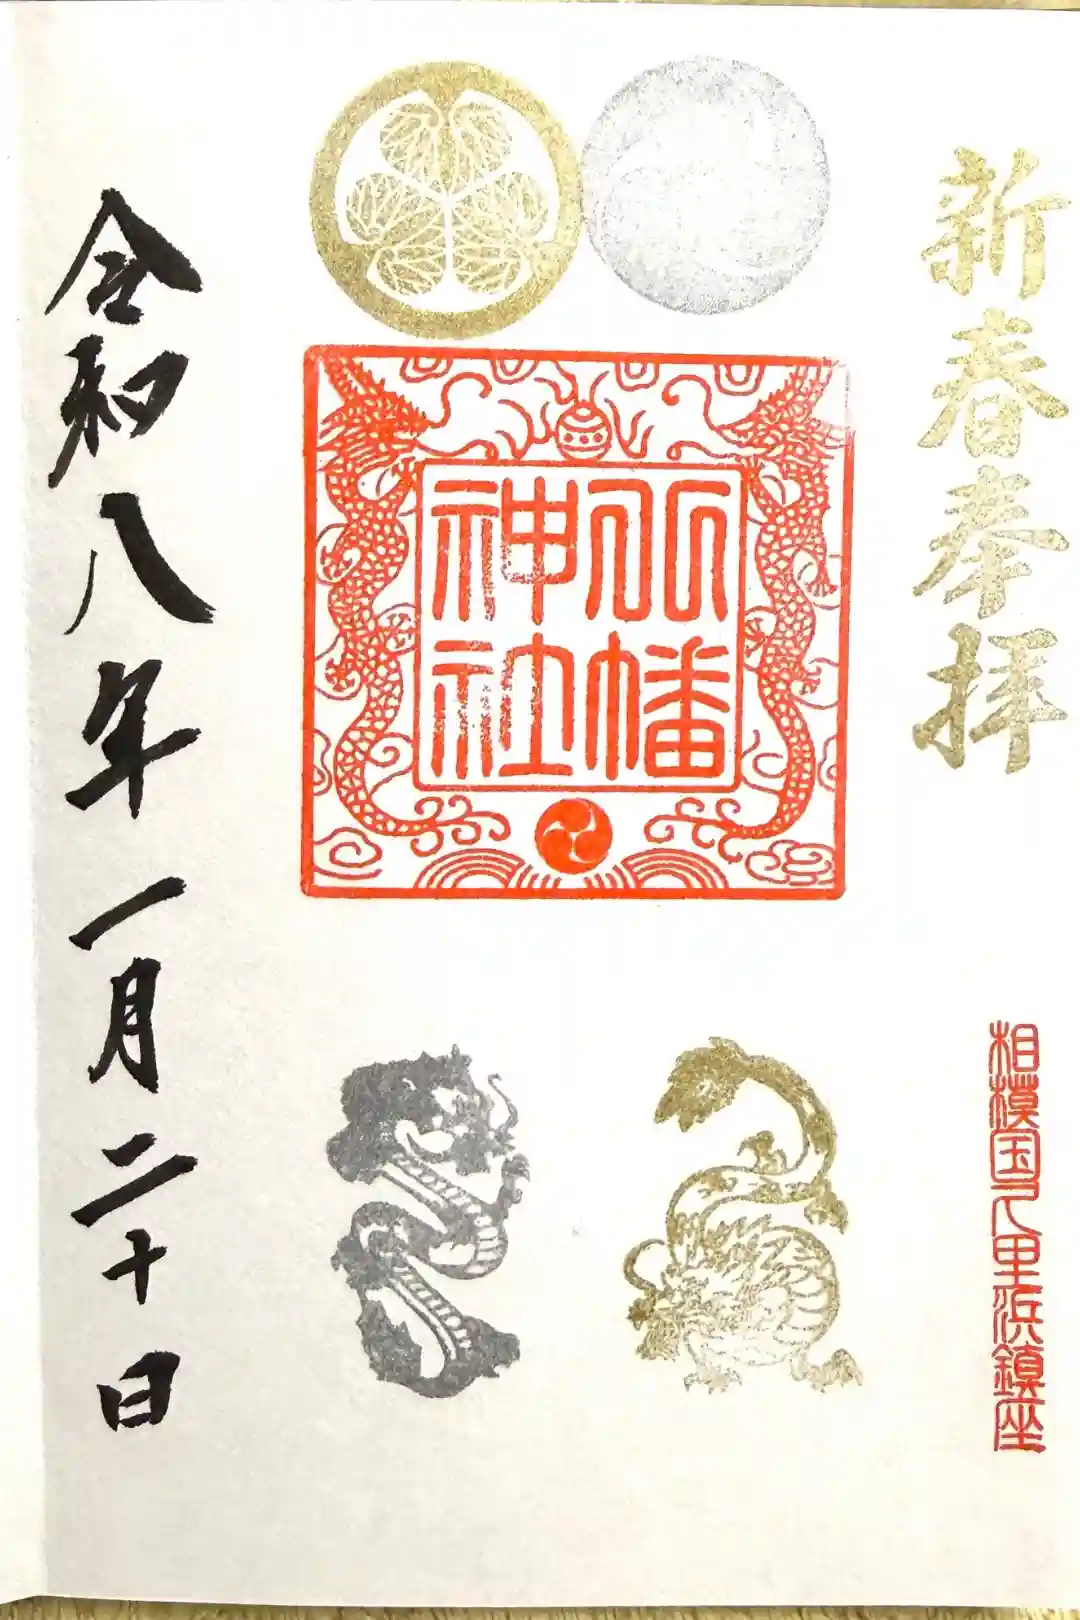 新春奉拝
相模国久里浜鎮座
八幡神社
令和八年一月二十日